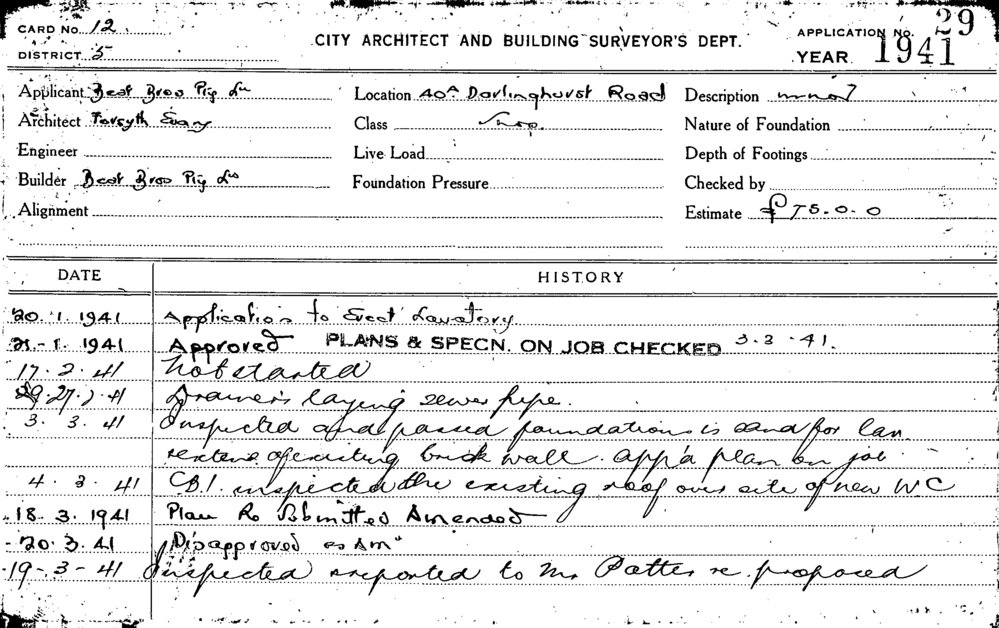 CARD No. 12
DISTRICT 5
CITY ARCHITECT AND BUILDING SURVEYOR'S DEPT.
APPLICATION No. 29
YEAR 1941
Applicant Beat Bros Pty
Location 40A Darlinghurst Road
Description
Architect Forsyth Evans
Class Shop.
Nature of Foundation
Engineer
Live Load
Depth of Footings
Builder Beat Bros Pty
Foundation Pressure
Checked by
Alignment
Estimate £75.0.0
DATE HISTORY
20.1.1941 Application to Erect Lavatory
21-1.1941 Approved PLANS & SPECN. ON JOB CHECKED 3.3.41.
17.2.41 Not started
27.2.41 Drainers laying sewer pipe.
3.3.41 Inspected and passed foundations is sand for lav.
of existing brick wall. app'd plan on job
4.3.41 C.B.I. inspected the existing roof over site of new WC
18-3.1941 Plan Re Submitted Amended
20.3.41 Disapproved as Am"
19-3-41 Inspected reported to Mr Potter re proposed